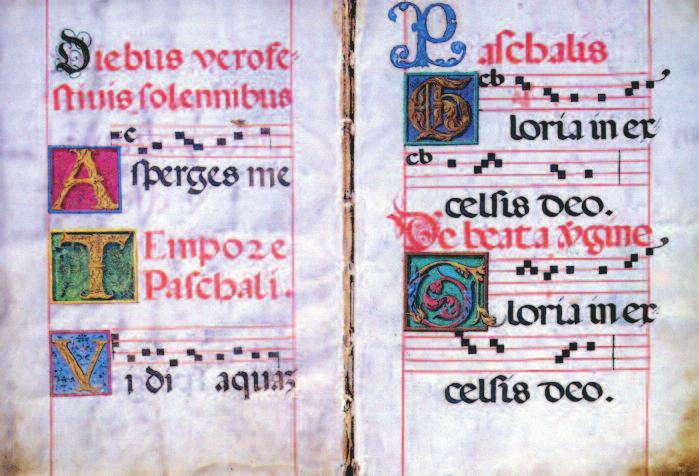 Diebus verofe-
stiuis solennibus
Asperges me
Tempore
Paschali.
Vidi aquaz
Paschalis
Gloria in ex
celsis deo.
De beata vgine
Gloria in ex
celsis deo.